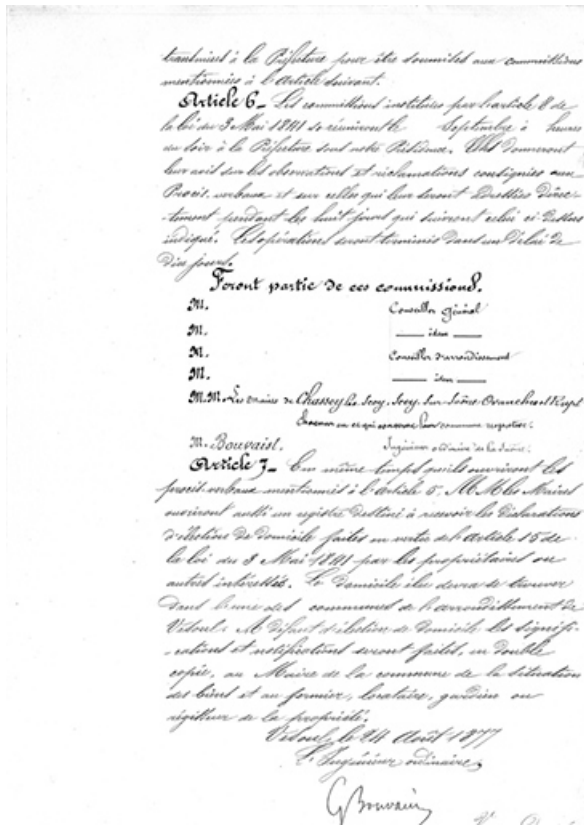 transmises à la Préfecture pour être soumises aux commissions
mentionnées à l'article suivant.
Article 6_ Les commissions instituées par l'article 8 de
la loi du 3 Mai 1841 se réuniront le Septembre à heures
du soir à la Préfecture sous notre Présidence. Elles donneront
leur avis sur les observations et réclamations consignées aux
Procès-verbaux et sur celles qui leur seront adressées direc-
tement pendant les huit jours qui suivront celui ci-dessus
indiqué. Les opérations seront terminées dans un délai de
dix jours.
Feront partie de ces commissions.
M. Conseiller général
M. — idem —
M. Conseiller d'arrondissement
M. — idem —
M.M. Les maires de Chassey-lès-Scey, Scey-sur-Saône, Ovanches et Rupt
chacun en ce qui concerne leur commune respective.
M. Bouvaist. Ingénieur ordinaire de la Saône.
Article 7_ En même temps qu'ils ouvriront les
procès-verbaux mentionnés à l'article 5, M.M. les Maires
ouvriront aussi un registre destiné à recevoir les déclarations
d'élection de domicile faites en vertu de l'article 15 de
la loi du 3 Mai 1841 par les propriétaires ou
autres intéressés. Le domicile élu devra se trouver
dans l'une des communes de l'arrondissement de
Vesoul. A défaut d'élection de domicile les signifi-
-cations et notifications seront faites, en double
copie, au Maire de la commune de la situation
des biens et au fermier, locataire, gardien ou
régisseur de la propriété.
Vesoul, le 24 Août 1877
L'Ingénieur ordinaire,
G Bouvaist